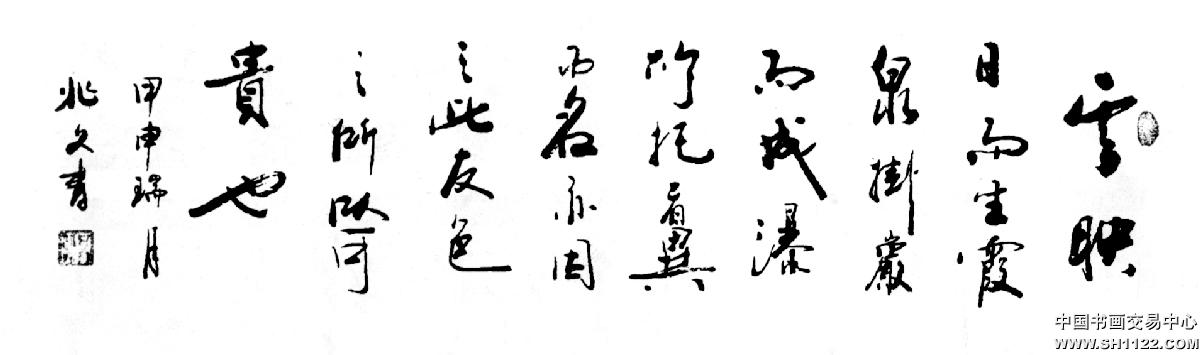 雲映
日而生霞
泉掛巖
而成瀑
所托者異
而名亦因
之此友道
之所以可
貴也
甲申瑞月
兆文書
中国书画交易中心
www.SH1122.com